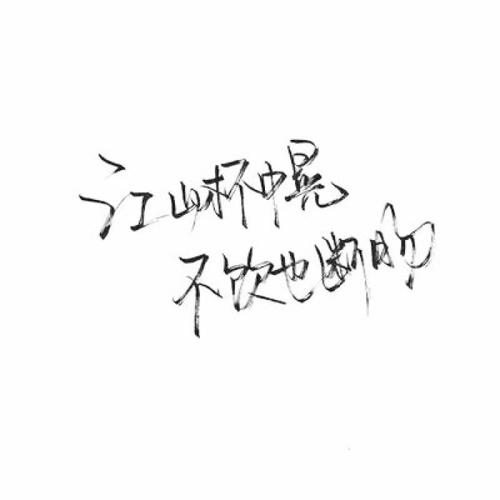 江山杯中晃
不饮也断肠